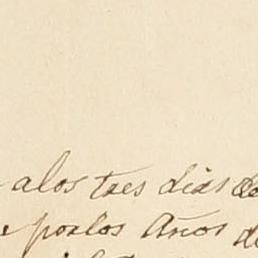 alos tres dias de
por los Años de